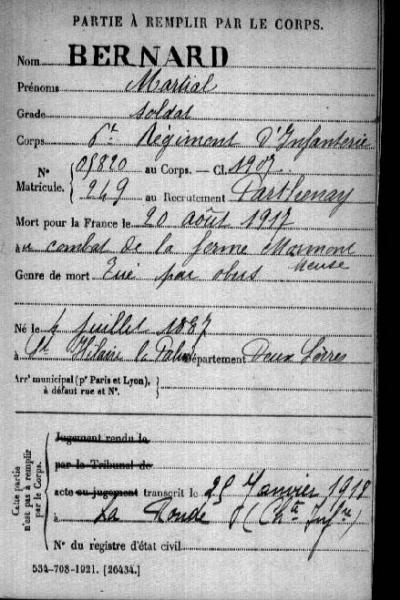 PARTIE À REMPLIR PAR LE CORPS.
Nom BERNARD
Prénoms Martial
Grade soldat
Corps 6e Régiment d'Infanterie
N° 05820 au Corps. — Cl. 1907
Matricule. 249 au Recrutement Parthenay
Mort pour la France le 20 août 1917
à au combat de la ferme Mormont
Meuse
Genre de mort Tué par obus
Né le 4 juillet 1887
à St Hilaire la Palud Département Deux Sèvres
Arrt municipal (pr Paris et Lyon),
à défaut rue et N°.
Cette partie n'est pas à remplir par le Corps.
Jugement rendu le
par le Tribunal de
acte ou jugement transcrit le 25 Janvier 1918
à La Ronde (Chte Infre)
N° du registre d'état civil
534-708-1921. [26434.]